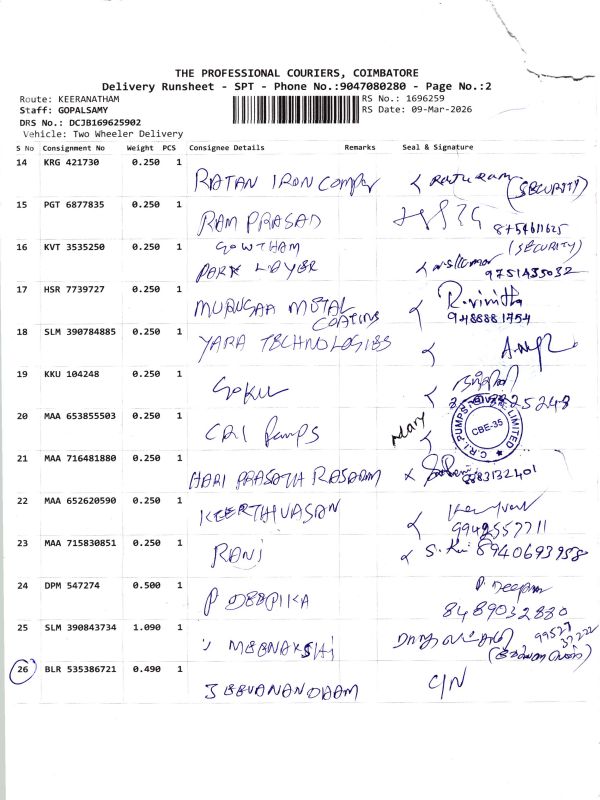 THE PROFESSIONAL COURIERS, COIMBATORE
Delivery Runsheet - SPT - Phone No.:9047080280 - Page No.:2
Route: KEERANATHAM
Staff: GOPALSAMY
DRS No.: DCJB169625902
Vehicle: Two Wheeler Delivery
RS No.: 1696259
RS Date: 09-Mar-2026
S No Consignment No Weight PCS Consignee Details Remarks Seal & Signature
14 KRG 421730 0.250 1
RATAN IRON (SECURITY)
15 PGT 6877835 0.250 1
RAM PRASAD
8754611625
16 KVT 3535250 0.250 1
GOWTHAM (SECURITY)
PARK
9751435032
17 HSR 7739727 0.250 1
MURUGAA METAL R.vinitha
COATINGS
18 SLM 390784885 0.250 1
YARA TECHNOLOGIES
19 KKU 104248 0.250 1
GOKUL
20 MAA 653855503 0.250 1
CRI Pumps Mary
C.R.I. PUMPS PRIVATE LIMITED
CBE-35
21 MAA 716481880 0.250 1
HARI PRASATH
8883132401
22 MAA 652620590 0.250 1
KEERTHIVASAN
9942557711
23 MAA 715830851 0.250 1
RANI 8940693958
24 DPM 547274 0.500 1
P DEEPIKA P Deepika
8489032880
25 SLM 390843734 1.090 1
MEENAKSHI
99527
37222
26 BLR 535386721 0.490 1
JEEVANANDAAM C/N